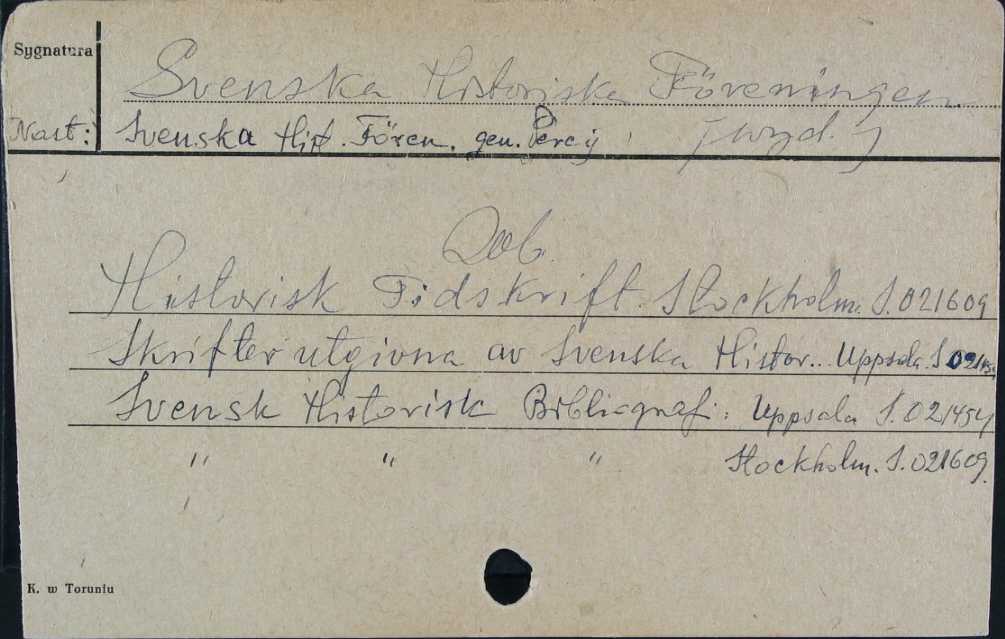 Sygnatura
Svenska Historiska Föreningen
Nast: Svenska Hist. Fören. gen. (wyd.)
Dob.
Historisk Tidskrift. Stockholm. S.021609
Skrifter utgivna av Svenska Histor.. Uppsala. S.
Svensk Historisk Bibliografi: Uppsala S.021454
" " " Stockholm. S.021609.
K. w Toruniu